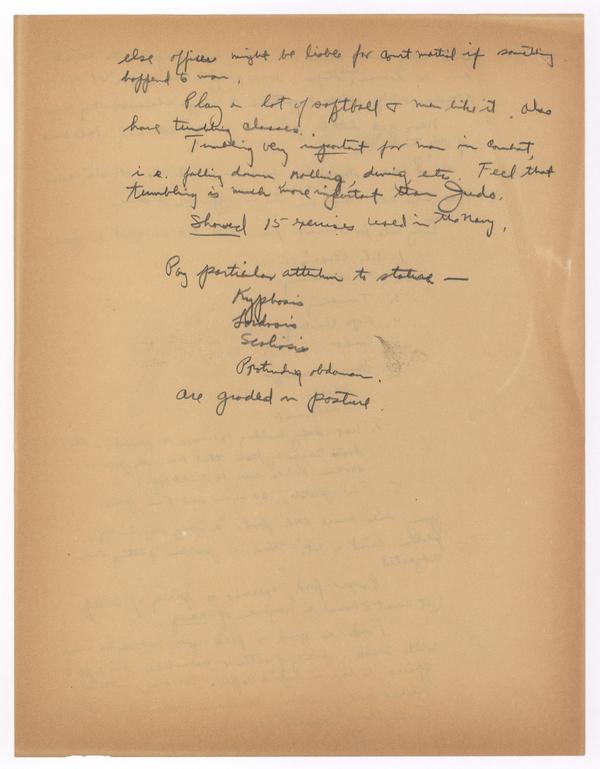 else officer might be liable for court martial if something
happend to man.
Play a lot of softball & men like it. Also
have tumbling classes.
Tumbling very important for man in combat,
i.e. falling down, rolling, diving, etc. Feel that
tumbling is much more important than Judo.
Showed 15 exercises used in the Navy.
Pay particular attention to stature —
Kyphosis
Lordosis
Scoliosis
Protruding abdomen.
are graded on posture.